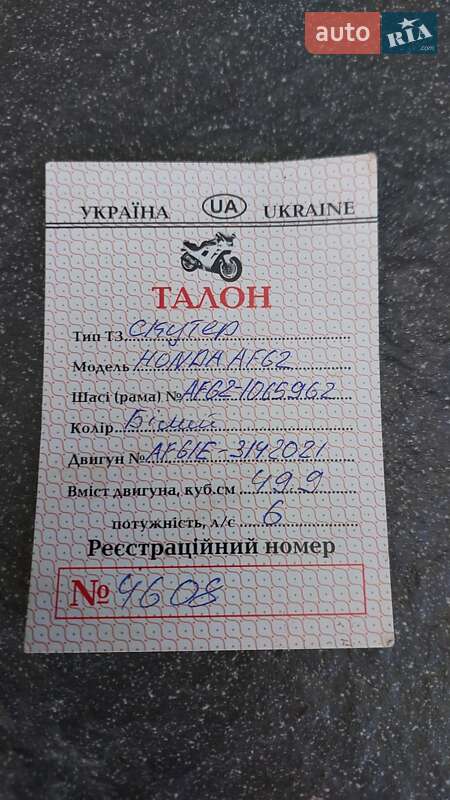 auto RIA.com
УКРАЇНА UA UKRAINE
ТАЛОН
Тип ТЗ скутер
Модель HONDA AF62
Шасі (рама) № AF62-1065962
Колір Білий
Двигун № AF61E-3142021
Вміст двигуна, куб.см 49.9
потужність, л/с 6
Реєстраційний номер
№ 4608